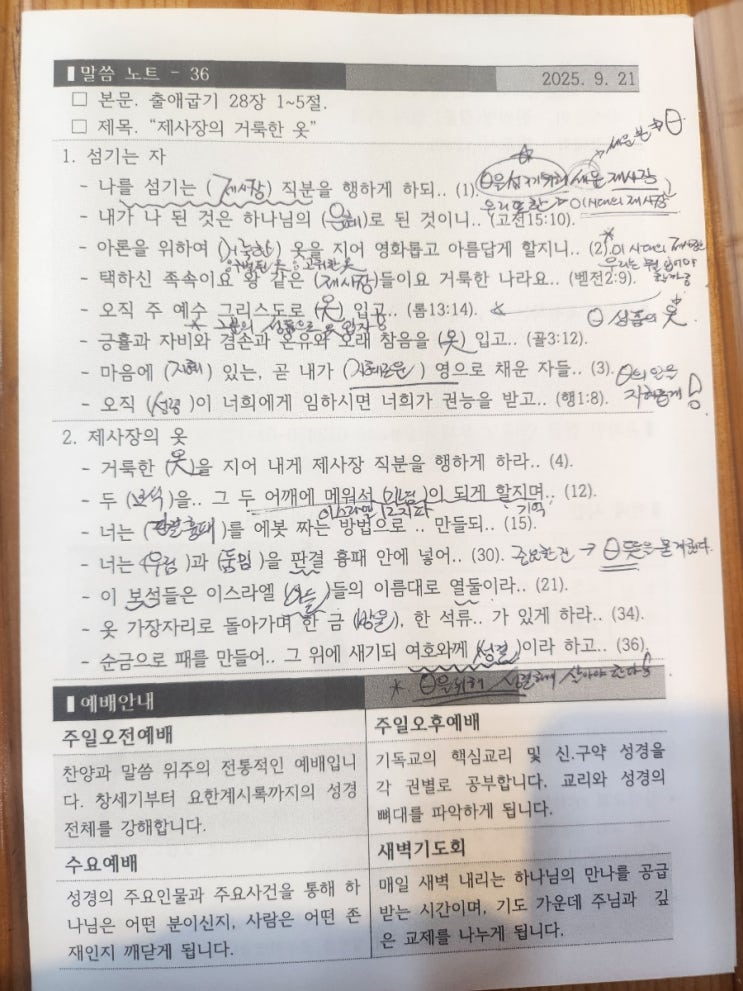 ▌말씀 노트 - 36 2025. 9. 21
□ 본문. 출애굽기 28장 1~5절.
□ 제목. "제사장의 거룩한 옷"
세운 분 → Θ
1. 섬기는 자
- 나를 섬기는 (제사장) 직분을 행하게 하되.. (1). 세운 제사장
우리 또한 이 시대의 제사장
- 내가 나 된 것은 하나님의 (은혜)로 된 것이니.. (고전15:10).
- 아론을 위하여 (거룩한) 옷을 지어 영화롭고 아름답게 할지니.. (2). 이 시대의 제사장
구별된 옷, 고귀한 옷
- 택하신 족속이요 왕 같은 (제사장)들이요 거룩한 나라요.. (벧전2:9).
- 오직 주 예수 그리스도로 (옷) 입고.. (롬13:14).
Θ 성품의 옷
- 긍휼과 자비와 겸손과 온유와 오래 참음을 (옷) 입고.. (골3:12).
- 마음에 (지혜) 있는, 곧 내가 (지혜로운) 영으로 채운 자들.. (3).
- 오직 (성령)이 너희에게 임하시면 너희가 권능을 받고.. (행1:8). 지혜롭게
2. 제사장의 옷
- 거룩한 (옷)을 지어 내게 제사장 직분을 행하게 하라.. (4).
- 두 (보석)을.. 그 두 어깨에 메워서 (기념)이 되게 할지며.. (12).
이스라엘 12지파 기억
- 너는 (판결흉패)를 에봇 짜는 방법으로 .. 만들되.. (15).
- 너는 (우림)과 (둠밈)을 판결 흉패 안에 넣어.. (30). 중요한 건 → Θ 뜻을 묻게 했다.
- 이 보석들은 이스라엘 (아들)들의 이름대로 열둘이라.. (21).
- 옷 가장자리로 돌아가며 한 금 (방울), 한 석류.. 가 있게 하라.. (34).
- 순금으로 패를 만들어.. 그 위에 새기되 여호와께 (성결)이라 하고.. (36).
* Θ을 위해 성결하게 살아야 한다
▌예배안내
주일오전예배
찬양과 말씀 위주의 전통적인 예배입니
다. 창세기부터 요한계시록까지의 성경
전체를 강해합니다.
주일오후예배
기독교의 핵심교리 및 신.구약 성경을
각 권별로 공부합니다. 교리와 성경의
뼈대를 파악하게 됩니다.
수요예배
성경의 주요인물과 주요사건을 통해 하
나님은 어떤 분이신지, 사람은 어떤 존
재인지 깨닫게 됩니다.
새벽기도회
매일 새벽 내리는 하나님의 만나를 공급
받는 시간이며, 기도 가운데 주님과 깊
은 교제를 나누게 됩니다.